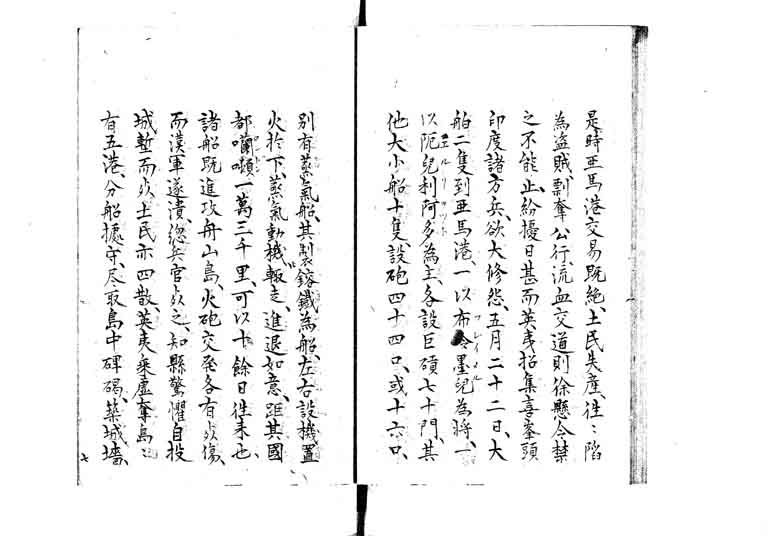 是時亜馬港交易既絶、土民失産、徃〻陥
為盗賊、剽奪公行、流血交道、則徐懸令禁
之不能止、紛擾日甚、而英夷招集喜峯頭
印度諸方兵、欲大修怨、五月二十二日、大
舶二隻到亜馬港、一以布冷墨児為将、一
以阨児利阿多為主、各設巨礟七十門、其
他大小船十隻、設砲四十四口、或十六口、
別有蒸気船、其製鎔鐵為船、左右設機置
火於下、蒸気動機輙走、進退如意、距其國
都蘭頓一萬三千里、可以十餘日徃来也、
諸船既進攻舟山島、火砲交発各有死傷、
而漢軍遂潰、總兵官死之、知縣驚懼自投
城塹而死、土民亦四散、英夷乗虚奪島〻
有五港、分船據守、尽取島中碑碣、築城墻、